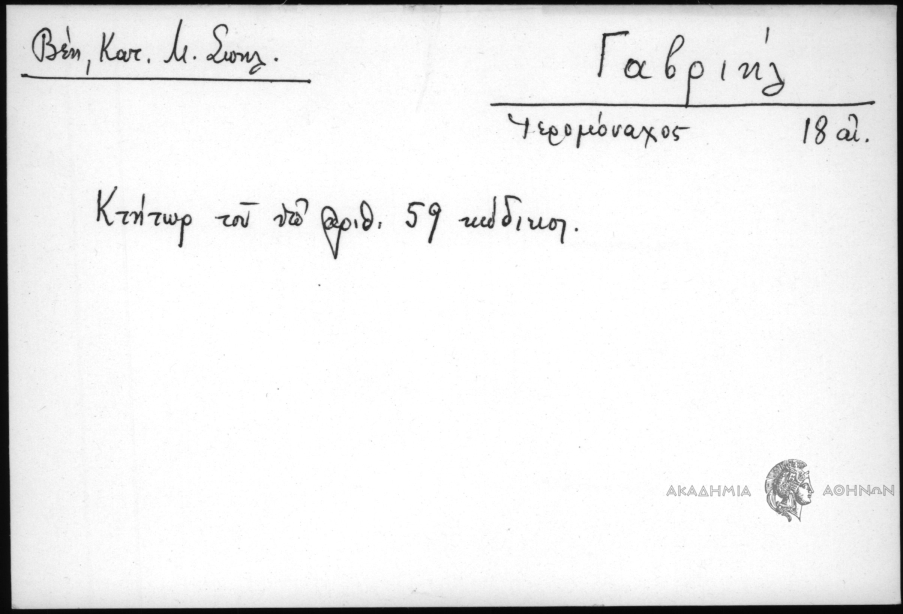 Βέη, Κατ. Μ. Σπηλ.
Γαβριήλ
Ἱερομόναχος 18 αἰ.
Κτήτωρ τοῦ ὑπ' ἀριθ. 59 κώδικος.
ΑΚΑΔΗΜΙΑ ΑΘΗΝΩΝ